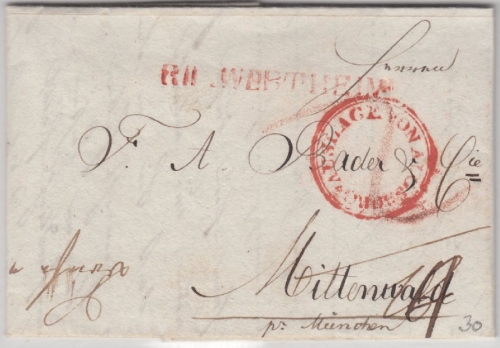 Herren
R.II.WERTHEIM
F. A. Bader & Cie
AUSLAGE VON A
Mittenwald
pr München
30